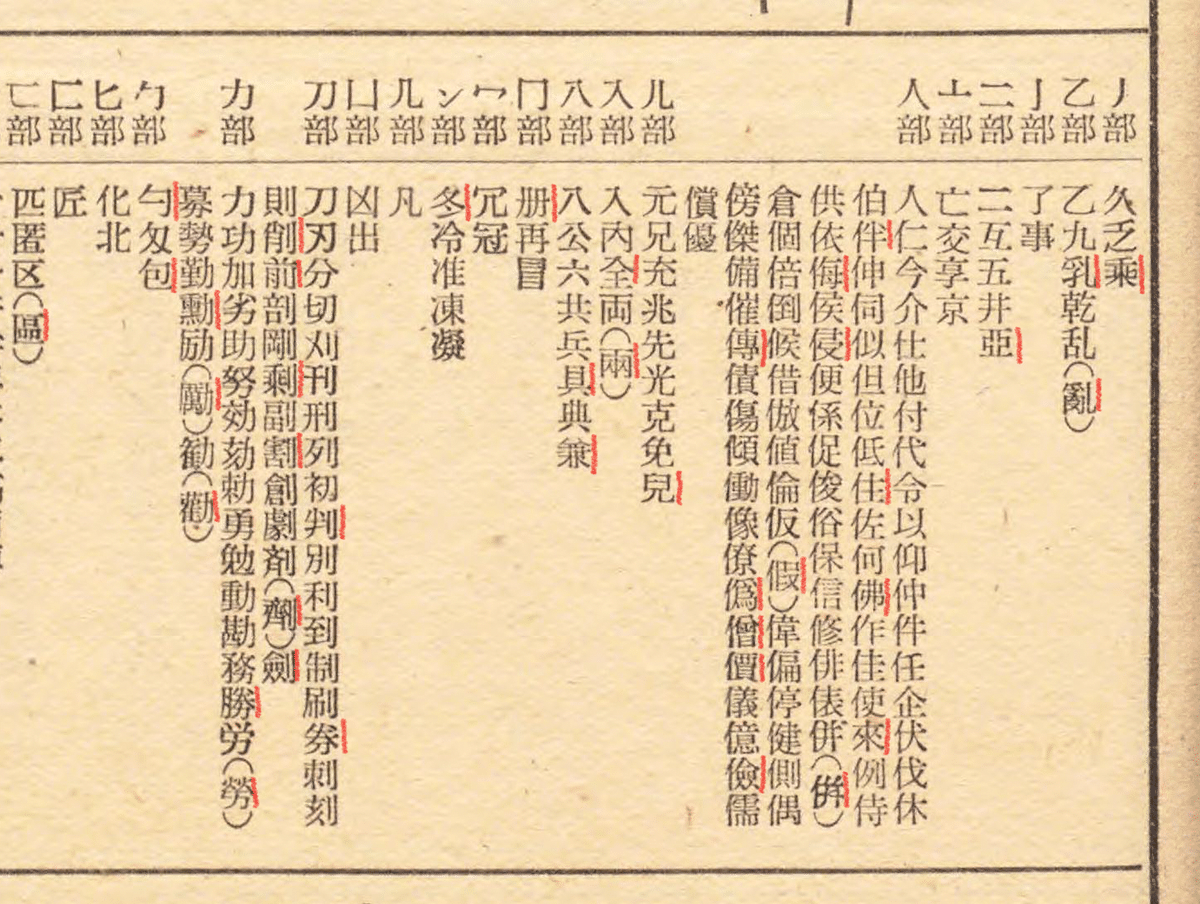 丿部 久乏乘
乙部 乙九乳乾乱(亂)
亅部 了事
二部 二互五井亞
亠部 亡交享京
人部 人仁今介仕他付代令以仰仲件任企伏伐休
伯伴伸伺似但位低住佐何佛作佳使來例侍
供依侮侯侵便係促俊俗保信修俳俵併(倂)
倉個倍倒候借倣値倫仮(假)偉偏停健側偶
傍傑備催傳債傷傾働像僚僞僧價儀億儉儒
償優
儿部 元兄充兆先光克免兒
入部 入內全両(兩)
八部 八公六共兵具典兼
冂部 册再冒
冖部 冗冠
冫部 冬冷准凍凝
几部 凡
凵部 凶出
刀部 刀刃分切刈刊刑列初判別利到制刷券刺刻
則削前剖剛剩副割創劇剤(劑)劍
力部 力功加劣助努効劾勅勇勉動勘務勝労(勞)
募勢勤勳励(勵)勧(勸)
勹部 勺匁包
匕部 化北
匚部 匠
匸部 匹匿区(區)